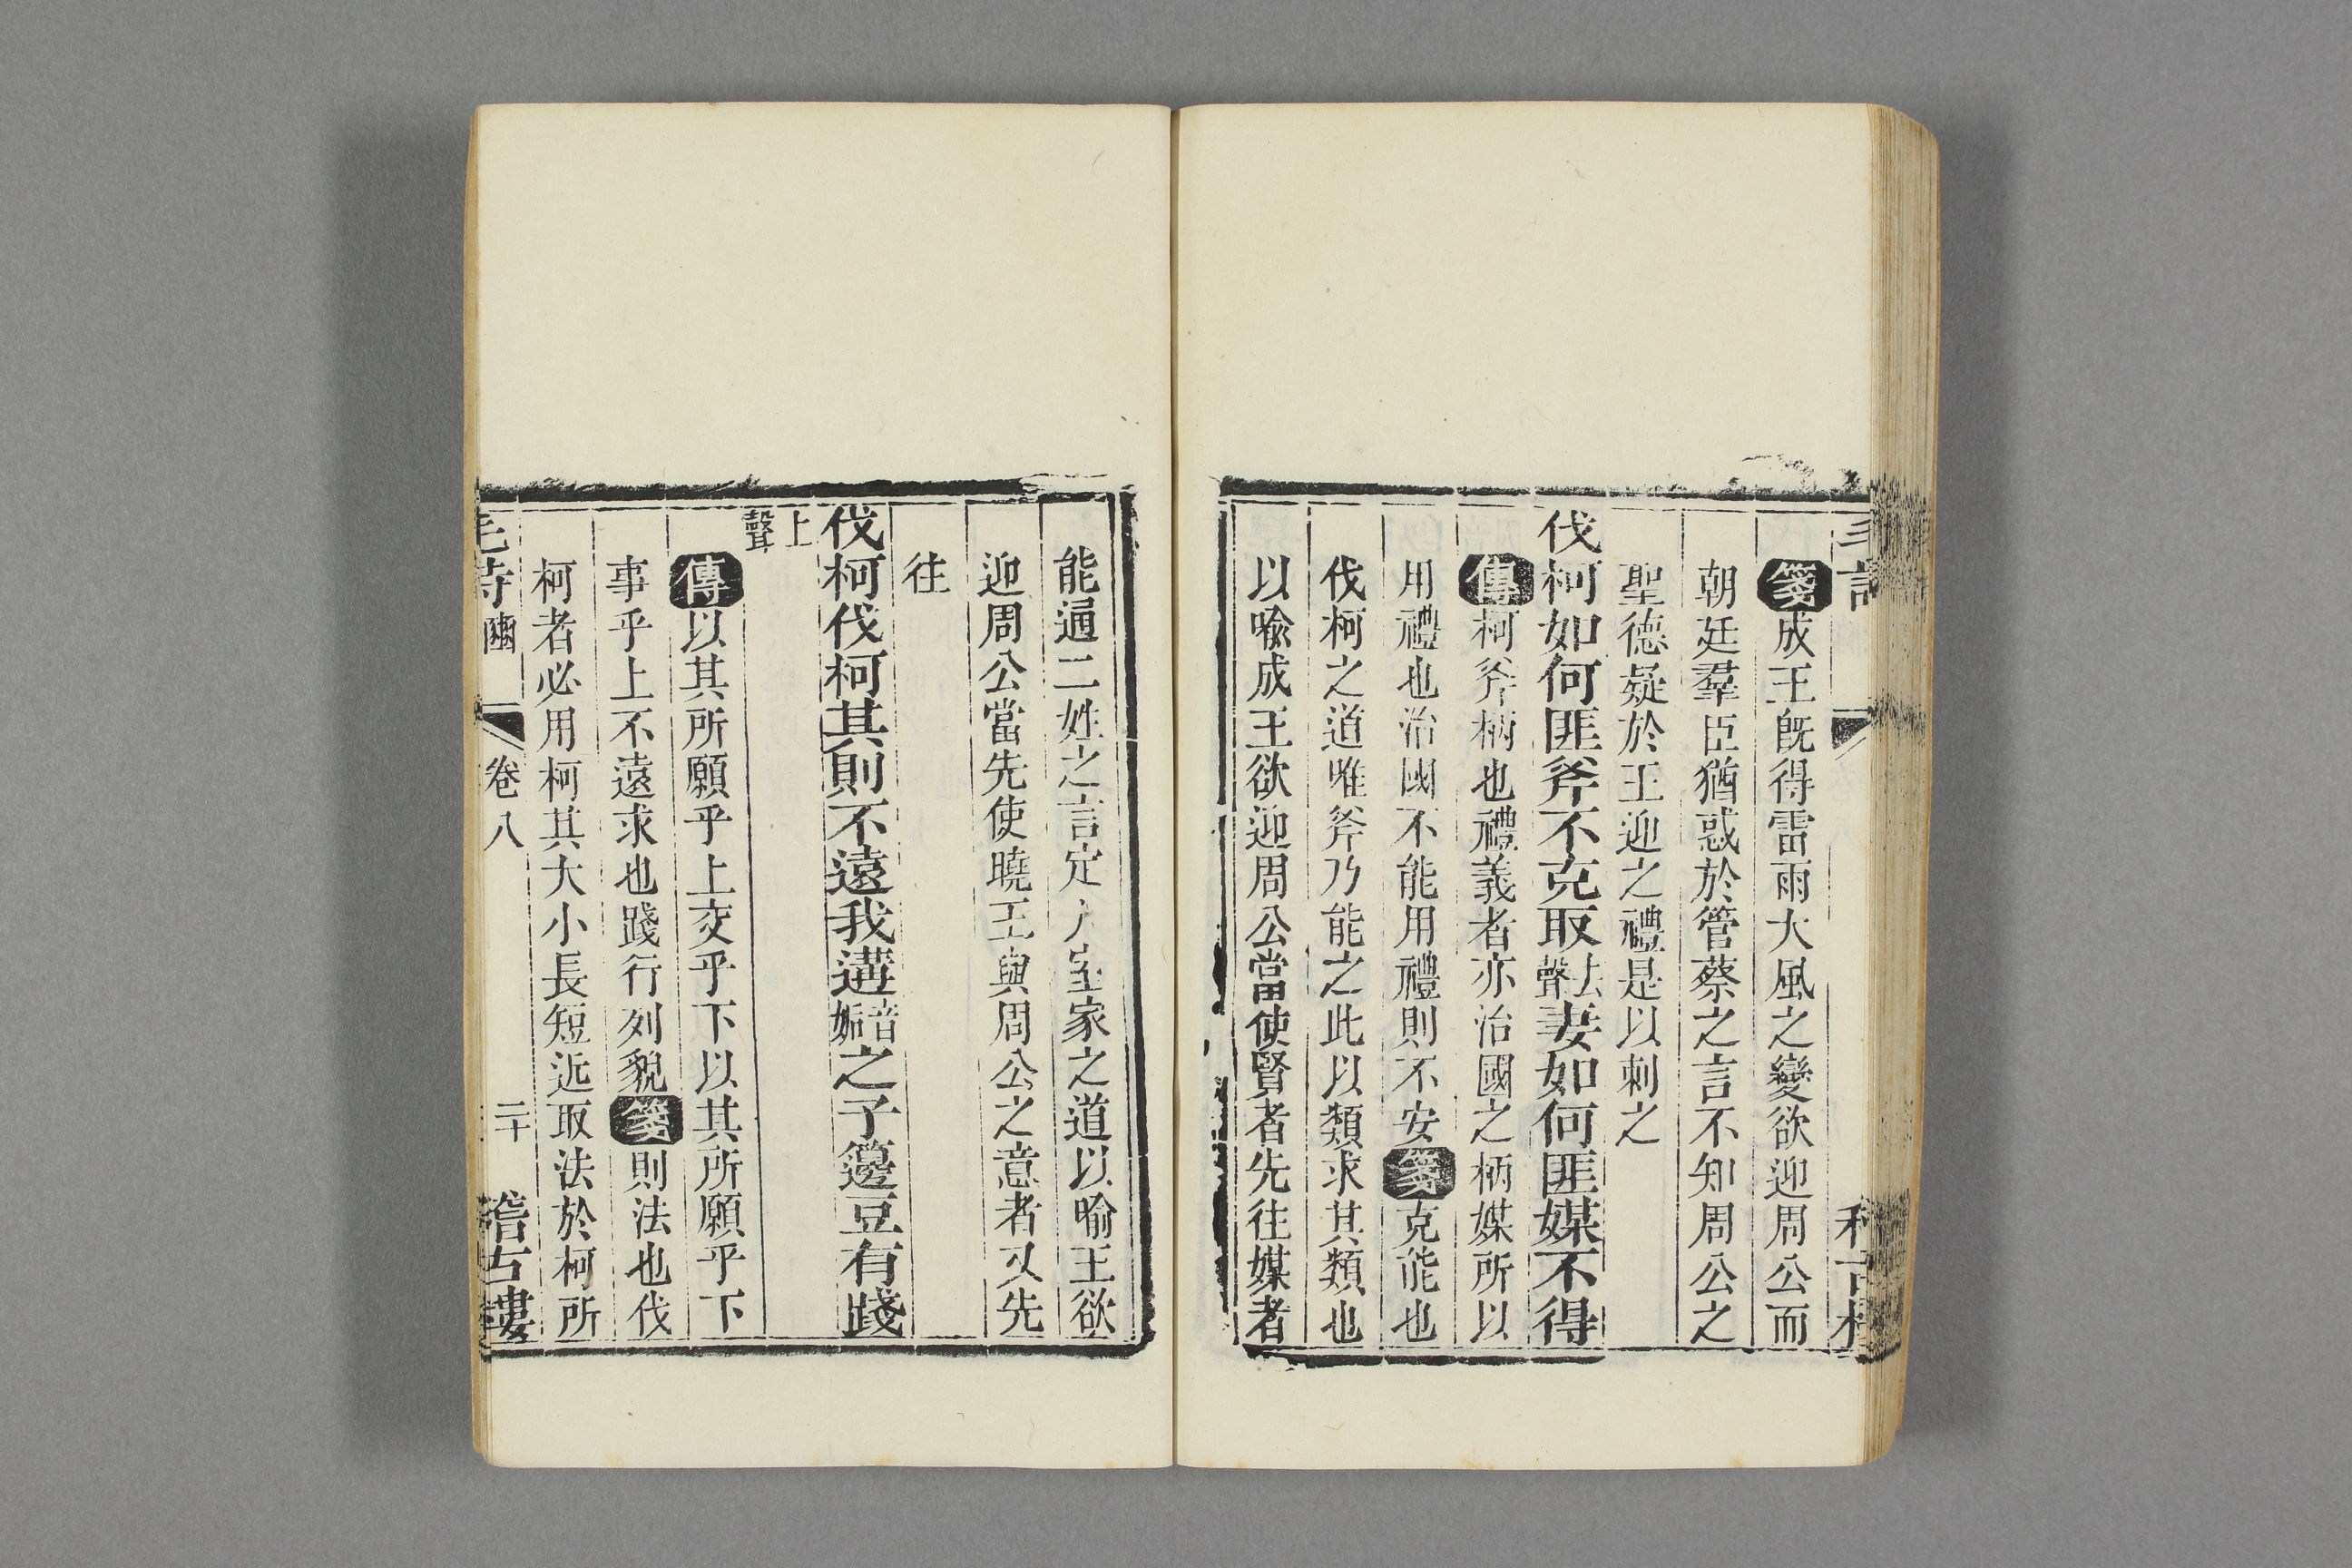 箋成王旣得雷雨大風之變欲迎周公而
朝廷羣臣猶惑於管蔡之言不知周公之
聖德疑於王迎之禮是以刺之
伐柯如何匪斧不克取去聲妻如何匪媒不得
傳柯斧柄也禮義者亦治國之柄媒所以
用禮也治國不能用禮則不安箋克能也
伐柯之道唯斧乃能之此以類求其類也
以喻成王欲迎周公當使賢者先往媒者
能通二姓之言定人室家之道以喻王欲
迎周公當先使曉王與周公之意者又先
往
伐柯伐柯其則不遠我遘音姤之子籩豆有踐
上聲
傳以其所願乎上交乎下以其所願乎下
事乎上不遠求也踐行列貌箋則法也伐
柯者必用柯其大小長短近取法於柯所
毛詩 豳 卷八 二十 稽古樓